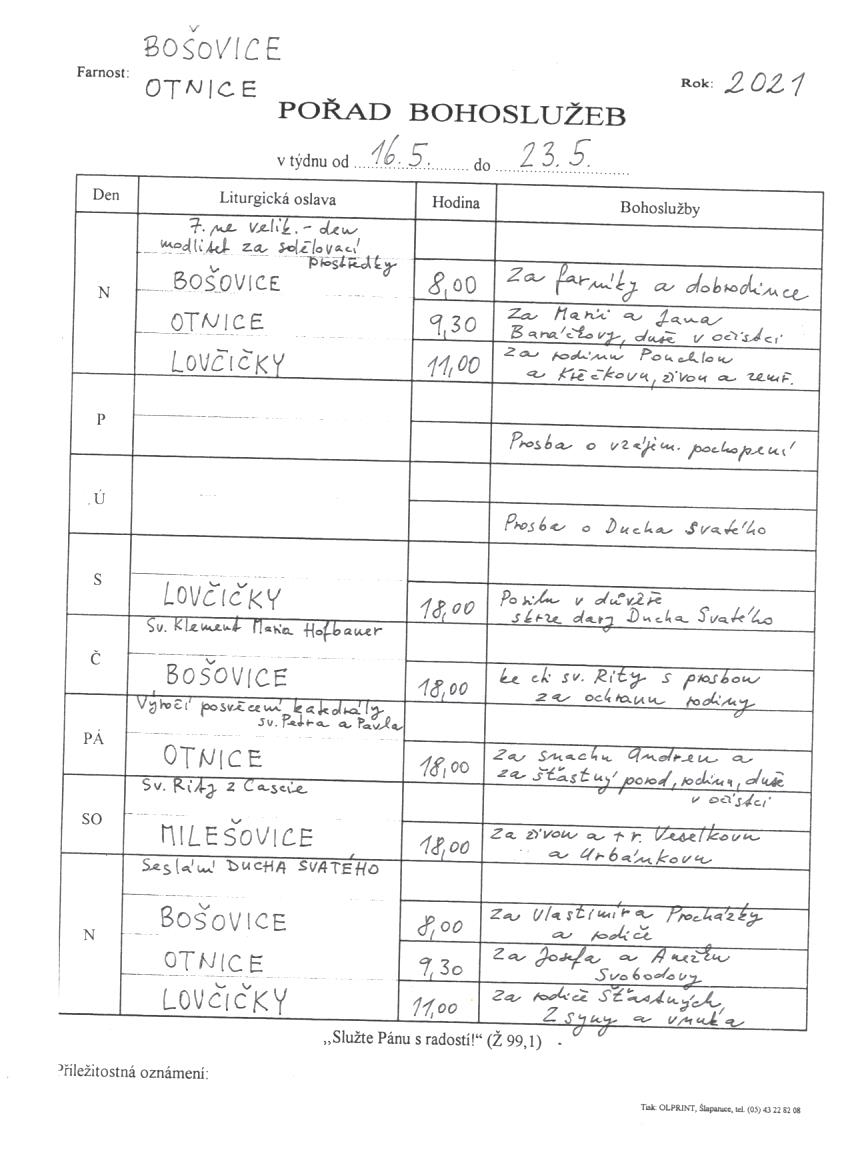 BOŠOVICE
Farnost:
OTNICE
Rok: 2021
POŘAD BOHOSLUŽEB
v týdnu od 16.5. do 23.5.
Den Liturgická oslava Hodina Bohoslužby
7. ne velik. - den
modliteb za sdělovací
prostředky
N
BOŠOVICE 8,00 Za farníky a dobrodince
OTNICE 9,30 Za Marii a Jana
Baráčkovy, duše v očistci
LOVČIČKY 11,00 Za rodinu Pouchlou
a Křečkovu, živou a zemř.
P
Prosba o vzájem. pochopení
Ú
Prosba o Ducha Svatého
S
LOVČIČKY 18,00 Posilu v důvěře
skrze dary Ducha Svatého
Sv. Klement Maria Hofbauer
Č
BOŠOVICE 18,00 ke cti sv. Rity s prosbou
za ochranu rodiny
Výročí posvěcení katedrály
sv. Petra a Pavla
PÁ
OTNICE 18,00 Za snachu Andreu a
za šťastný porod, rodinu, duše
v očistci
Sv. Rity z Cascie
SO
MILEŠOVICE 18,00 Za živou a + r. Veselkovu
a Urbánkovu
Seslání DUCHA SVATÉHO
N
BOŠOVICE 8,00 Za Vlastimíra Procházky
a rodiče
OTNICE 9,30 Za Josefa a Anežku
Svobodovy
LOVČIČKY 11,00 Za rodiče Šťastných,
2 syny a vnuka
„Služte Pánu s radostí!“ (Ž 99,1)
Příležitostná oznámení:
Tisk: OLPRINT, Šlapanice, tel. (05) 43 22 82 08